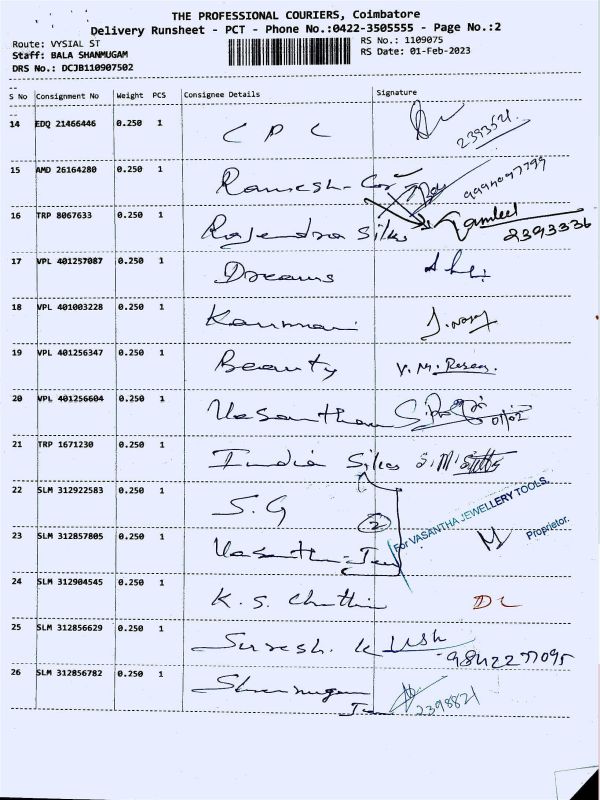 THE PROFESSIONAL COURIERS, Coimbatore
Delivery Runsheet - PCT - Phone No.:0422-3505555 - Page No.:2
Route: VYSIAL ST
RS No.: 1109075
Staff: BALA SHANMUGAM
RS Date: 01-Feb-2023
DRS No.: DCJB110907502
S No Consignment No Weight PCS Consignee Details Signature
14 EDQ 21466446 0.250 1 C P C 2393521
15 AMD 26164280 0.250 1 Ramesh-
16 TRP 8067633 0.250 1 Rajendra Silks 2393336
17 VPL 401257087 0.250 1 Dreams
18 VPL 401003228 0.250 1
19 VPL 401256347 0.250 1 Beauty V. M.
20 VPL 401256604 0.250 1 Vasantham 01/02
21 TRP 1671230 0.250 1 India Silks S.M.
22 SLM 312922583 0.250 1 S. G
For VASANTHA JEWELLERY TOOLS,
Proprietor.
2
23 SLM 312857805 0.250 1 Vasantha-
24 SLM 312904545 0.250 1 K. S.
25 SLM 312856629 0.250 1 Suresh. K 9842277095
26 SLM 312856782 0.250 1 Shanmugam 2398821